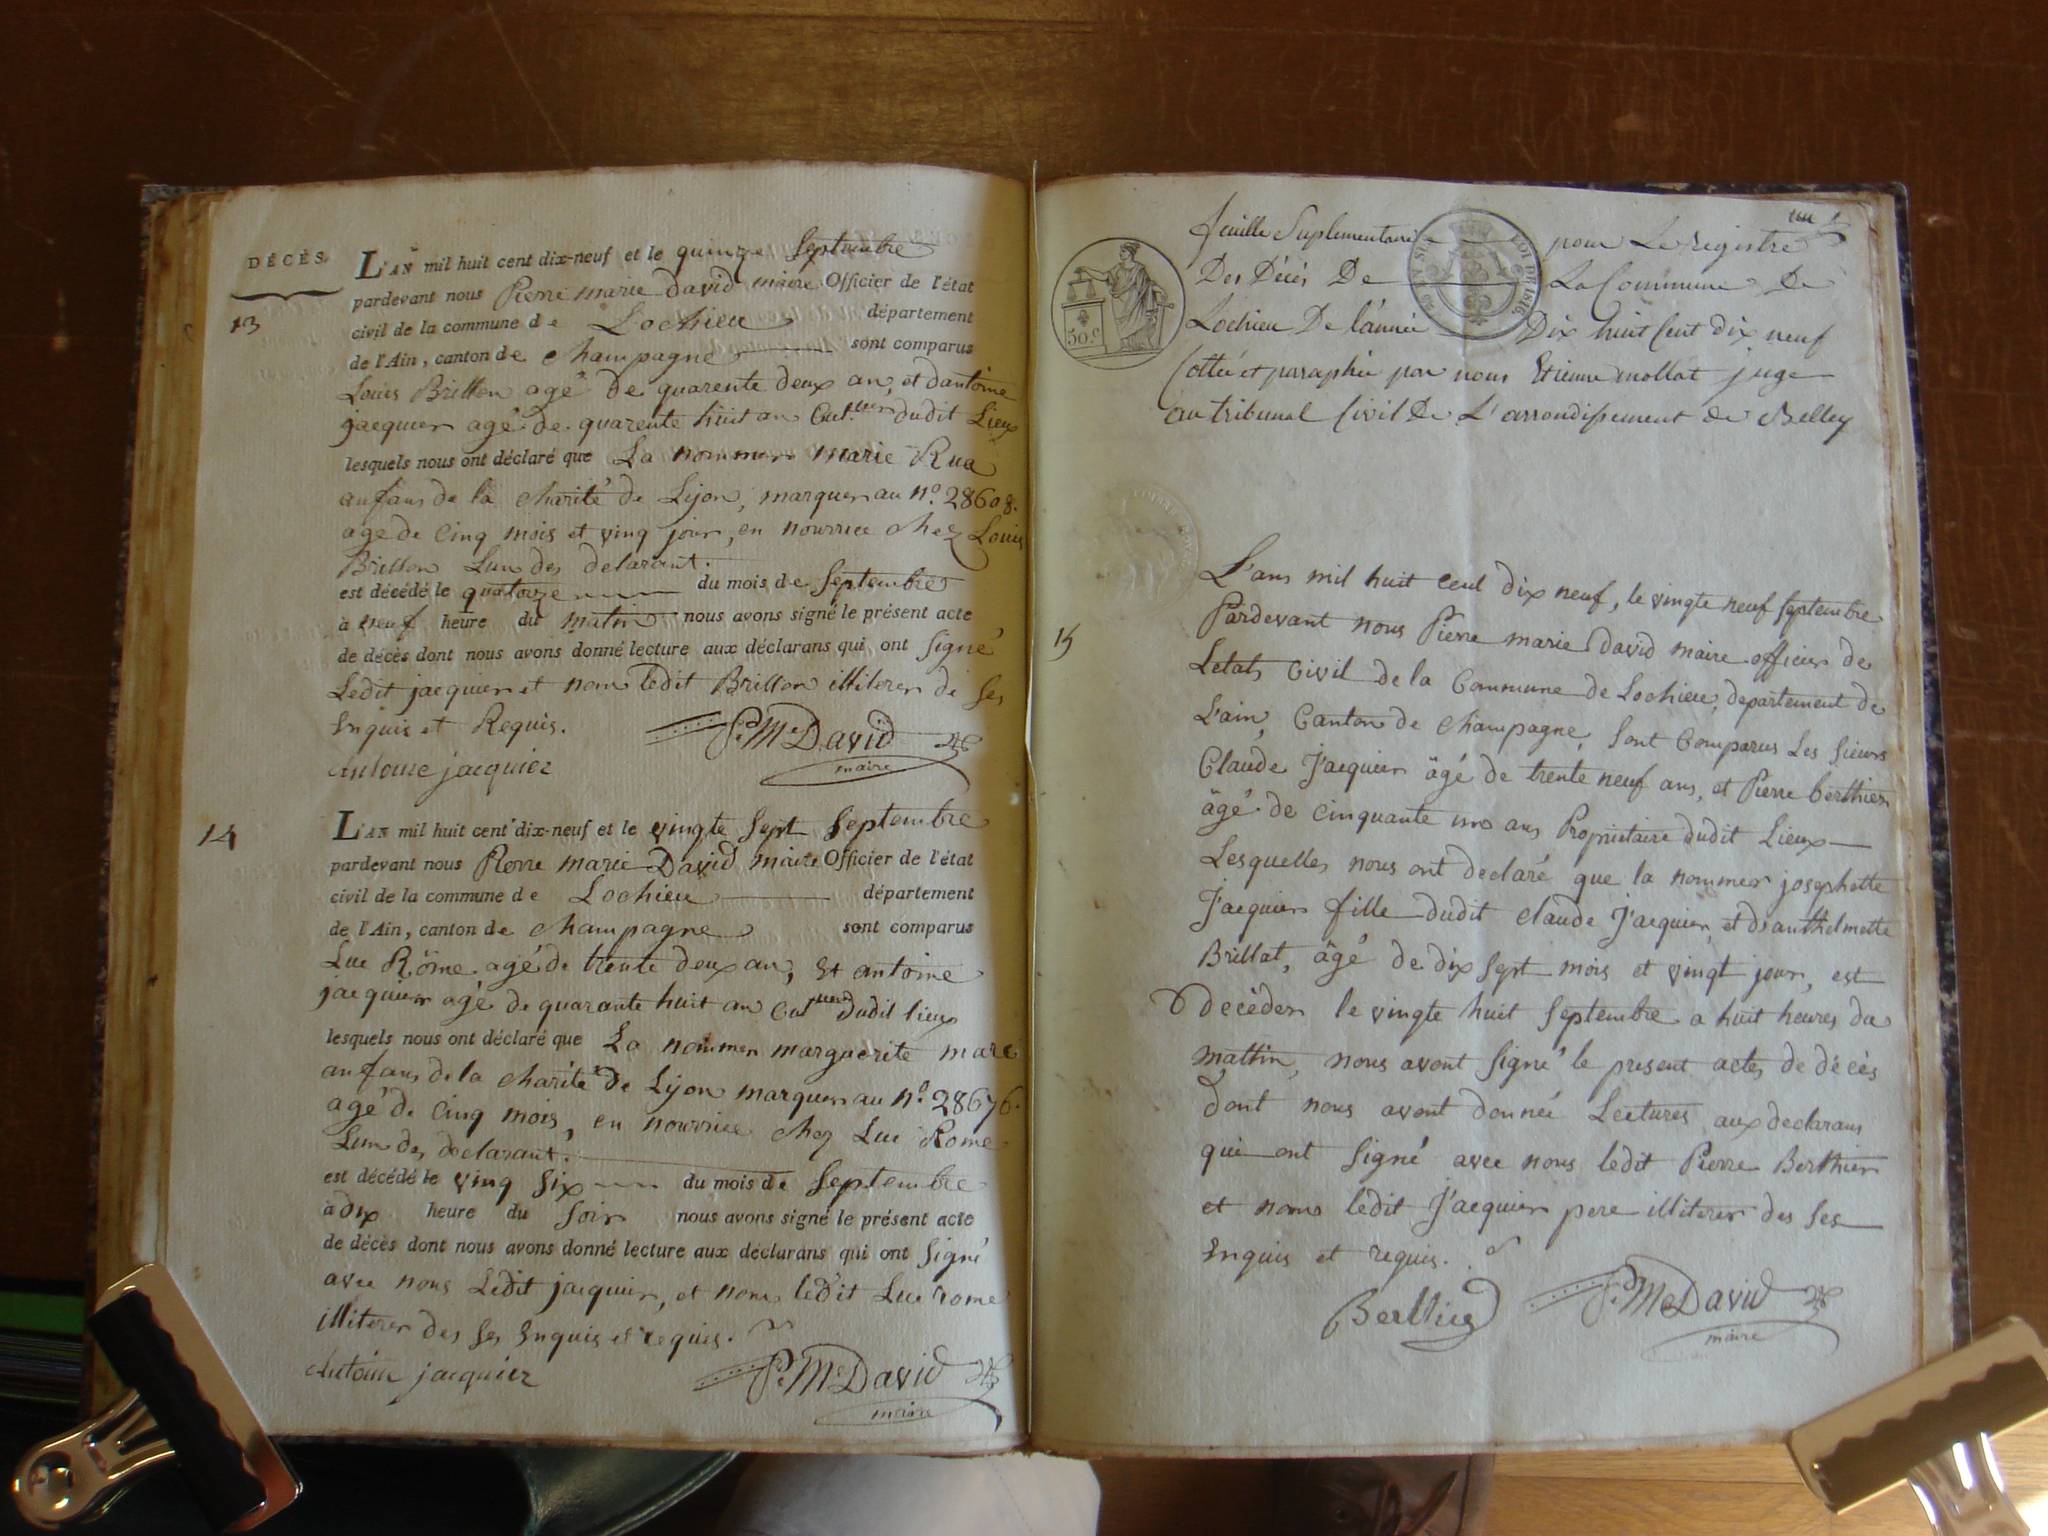 DÉCÈS
13
L'AN mil huit cent dix-neuf et le quinze Septembre
pardevant nous Pierre marie david maire Officier de l'état
civil de la commune de Lochieu département
de l'Ain, canton de Champagne sont comparus
Louis Brillon agé de quarente deux an, et dantoine
jacquier agé de quarente huit an Cult.eur dudit Lieux
lesquels nous ont déclaré que La nommer marie Rua
anfans de la charité de Lyon, marquer au n.º 28608.
age de Cinq mois et ving jour, en nourrice chez Louis
Brillon Lun des delarant.
est décédé le quatorze du mois de Septembre
à neuf heure du matin nous avons signé le présent acte
de décès dont nous avons donné lecture aux déclarans qui ont Signé
Ledit jacquier et nom ledit Brillon illiterer de Ses
Enquis et Requis.
P.re M.e David
maire
Antoine jacquier
14
L'AN mil huit cent dix-neuf et le vingte Sept Septembre
pardevant nous Pierre marie David maire Officier de l'état
civil de la commune de Lochieu département
de l'Ain, canton de Champagne sont comparus
Luc Röme agé de trente deux an, Et antoine
jacquier agé de quarante huit an Cult.eur dudit lieux
lesquels nous ont déclaré que La nommer marguerite mare
anfans de la charité de Lyon marquer au n.º 28676.
agé de Cinq mois, en nourrice chez Luc Rome
Lun des declarant.
est décédé le ving Six du mois de Septembre
à Dix heure du Soir nous avons signé le présent acte
de décès dont nous avons donné lecture aux déclarans qui ont Signé
avec nous Ledit jacquier, et nom ledit Luc rome
illiterer des Ses Enquis et requis.
Antoine jacquier
P.re M.e David
maire
feuille Suplementaire pour Le registre
Des Décès De La Commune De
Lochieu De l'année Dix huit Cent dix neuf
Cottée et paraphée par nous Etienne mollat juge
au tribunal Civil De L'arrondissement de Belley
50.c
LOI DE 1816
15
L'ans mil huit Cent dix neuf, le vingte neuf Septembre
Pardevant nous Pierre marie David maire officier de
Letats Civil de la Commune de Lochieu, departement de
L'ain, Canton de Champagne, Sont Comparus Les Sieurs
Claude Jacquier âgé de trente neuf ans, et Pierre berthier
âgé de cinquante un ans Proprietaire dudit Lieux
Lesquelles nous ont declaré que la nommer josephette
Jacquier fille dudit claude Jacquier, et d'anthelmette
Brillat, âgé de dix Sept mois et vingt jour, est
Décéder le vingte huit Septembre a huit heures du
mattin, nous avont Signé le present actes de décès
dont nous avont donnée Lectures aux declarans
qui ont Signé avec nous ledit Pierre Berthier
et nom ledit Jacquier pere illiterer des Ses
Enquis et requis.
Berthier
P.re M.e David
maire